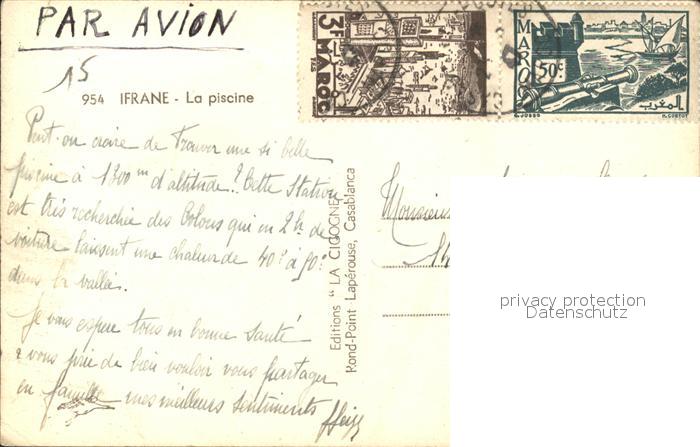 PAR AVION
15
954 IFRANE - La piscine
3F
MAROC
50c
MAROC
المغرب
Peut-on croire de trouver une si belle
piscine à 1300m d'altitude? Cette Station
est très recherchée des Colons qui en 2h. de
voiture laissent une chaleur de 40° à 50°
dans la vallée.
Je vous espère tous en bonne santé
& vous prie de bien vouloir vous partager
en famille mes meilleurs sentiments
Editions "LA CIGOGNE"
Rond-Point Lapérouse, Casablanca
Monsieur
privacy protection
Datenschutz